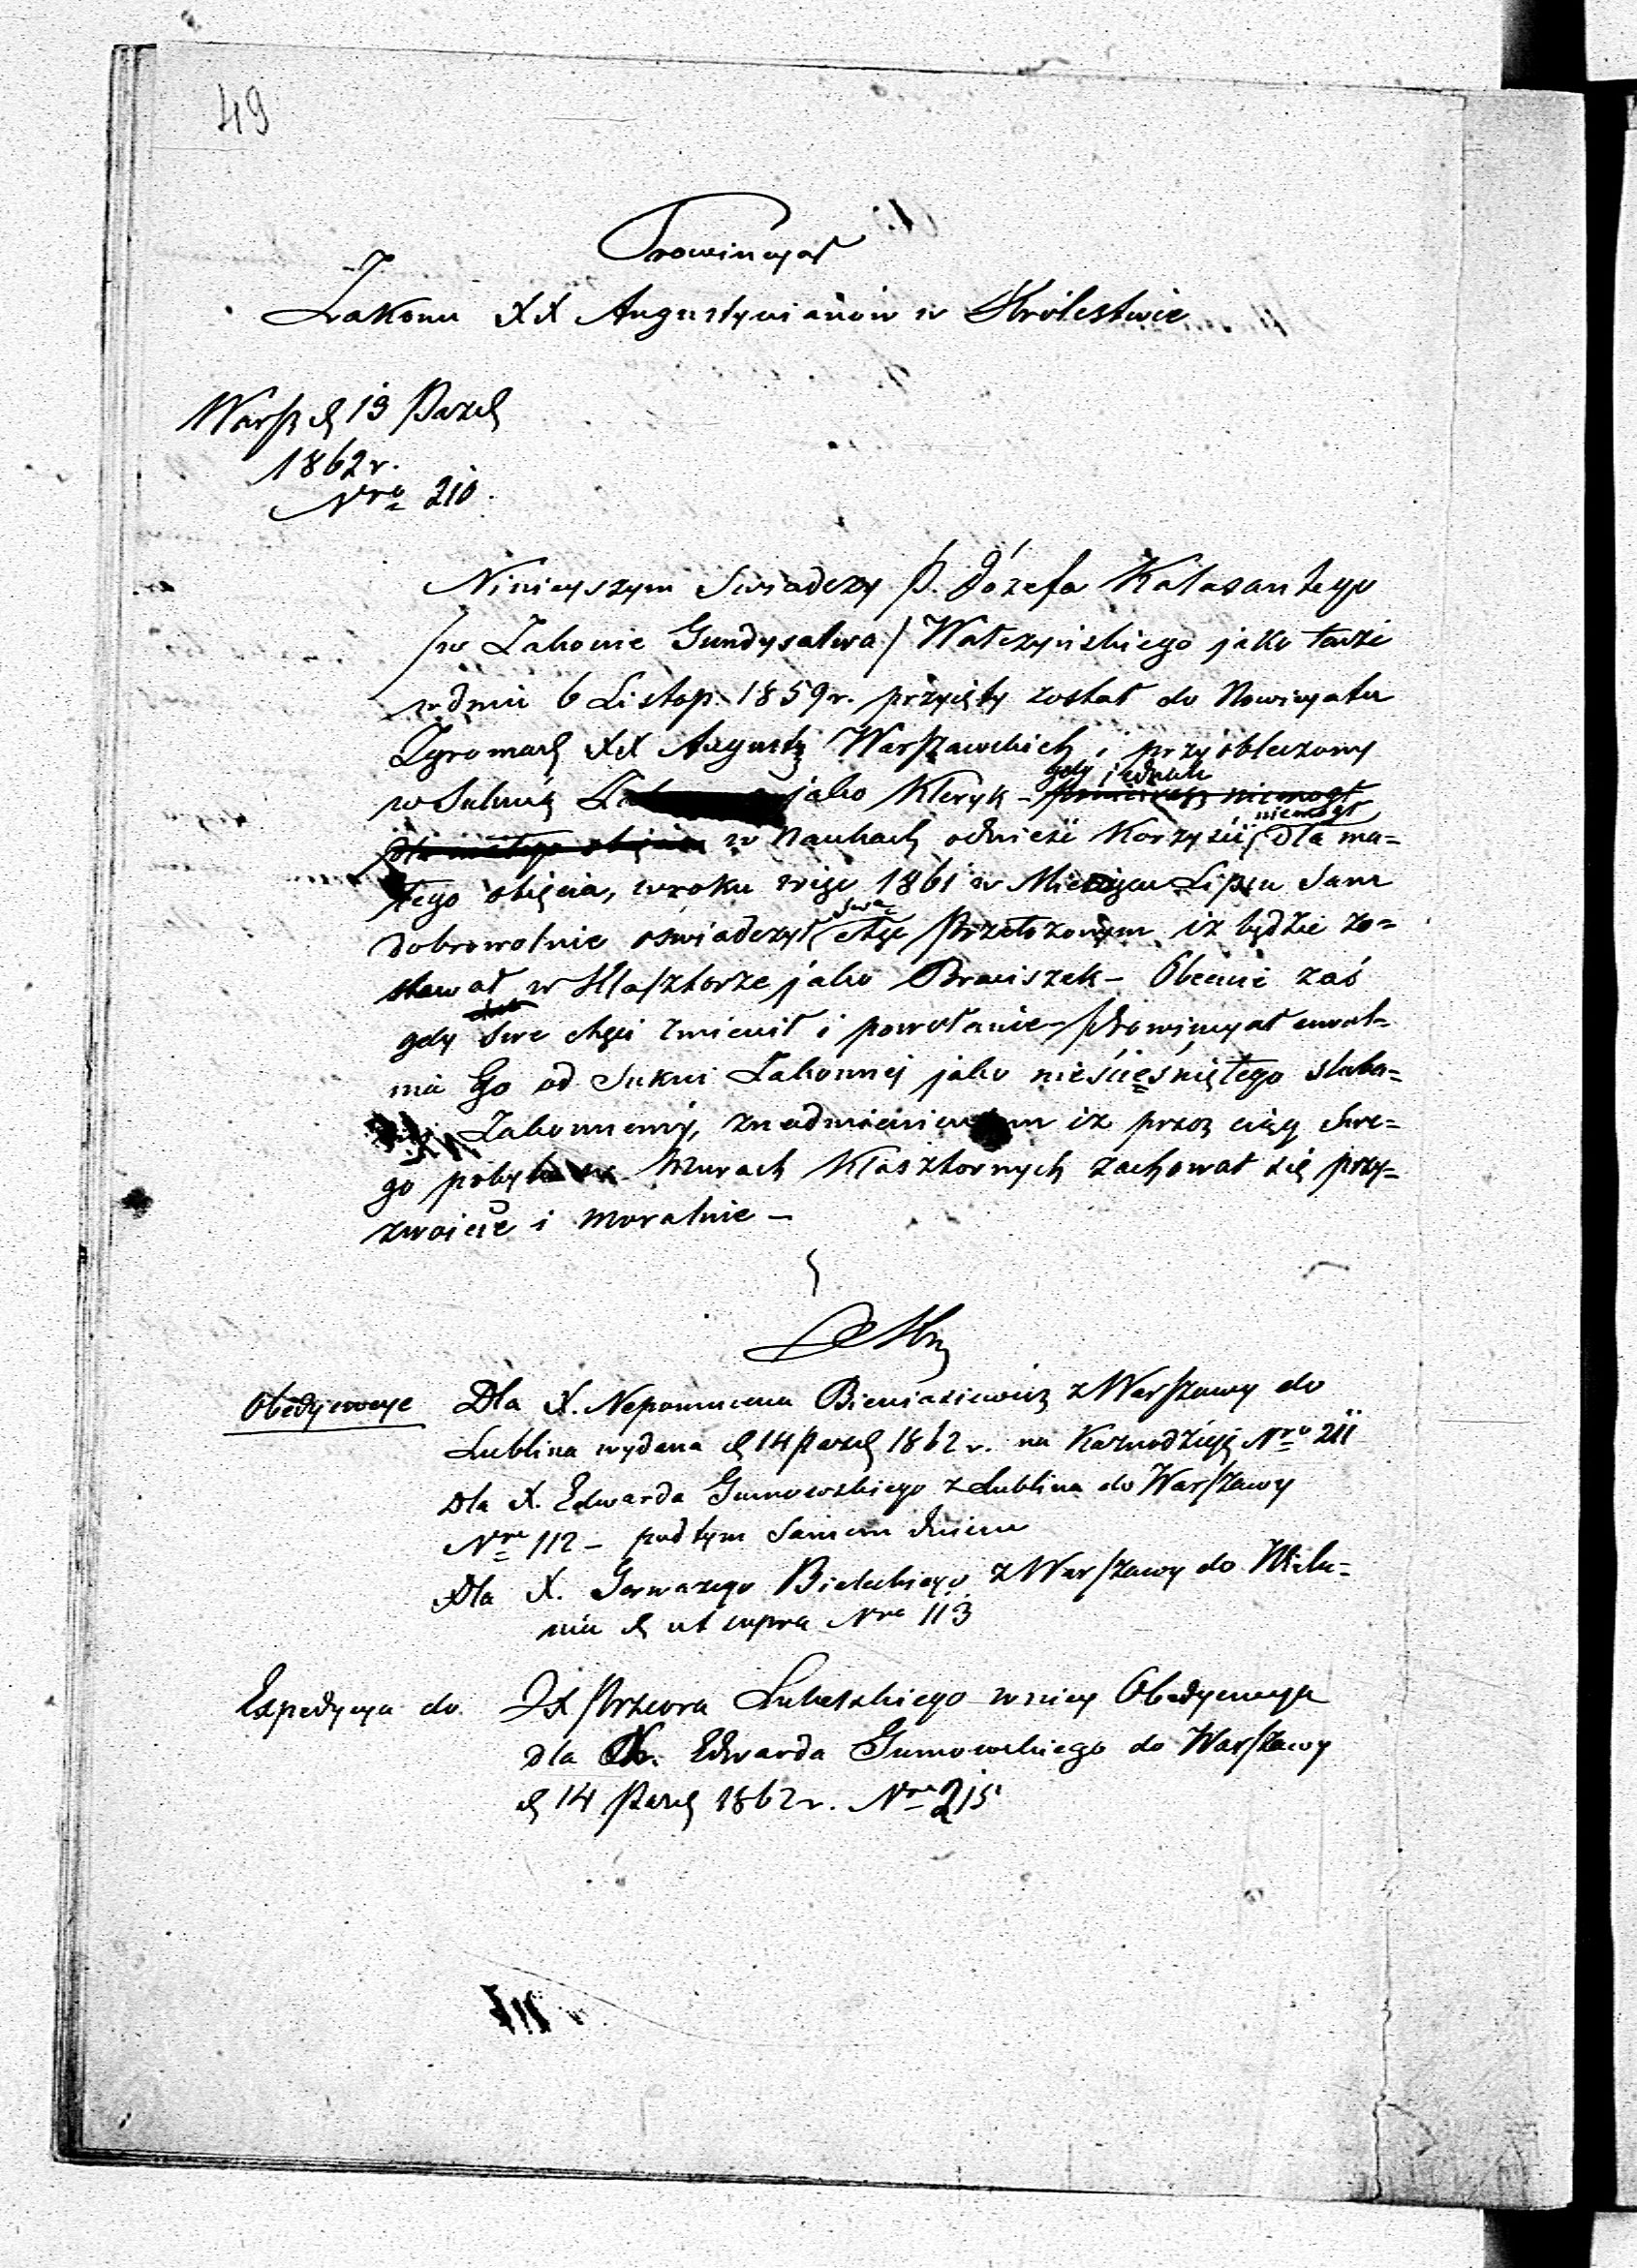 49
Prowincyał
Zakonu XX Augustynianów w Królestwie
Warsz d. 13 Pazd
1862 r.
Nro 210.
Niniejszym Swiadczy P. Józefa Kalasantego
/w Zakonie Gundysalwa/ Wałczyńskiego jako tenże
w dniu 6 Listop. 1859 r. przyięty został do Nowicyatu
Zgromad XX Augusty Warszawskich i przyobleczony
w Suknią jako Kleryk – gdy jednak ponieważ niemogł
dla małego objęcia w Naukach odnieść Korzyści niemogł dla ma=
łego objęcia, w roku więc 1861 w Miesiącu Lipcu Sam
dobrowolnie oświadczył swą chęć Przełożonym iz będzie zo=
stawał w Klasztorze jako Braciszek – Obecnie zaś
gdy Swe chęci zmienił i powołanie – Prowincyał uwal=
nia Go od Sukni Zakonnej jako nieścięśniętego sluba=
Zakonnemi, znadmienieniem iz przez ciąg Swe=
go pobytu w Murach Klasztornych zachował się przy=
zwoicie i moralnie –
Obedyencye Dla X. Nepomucena Bieniasiewicz z Warszawy do
Lublina wydana d 14 Pazd 1862 r. na Kaznodzieję Nro 211
Dla X. Edwarda Gumowskiego z Lublina do Warszawy
Nro 112 – pod tym Samem dniem
Dla X. Gerwazego Bieleckiego z Warszawy do Wielu=
nia d ut supra Nro 113
Expedycya do JX Przeora Lubelskiego w niey Obedyencya
dla X. Edwarda Gumowskiego do Warszawy
d 14 Pazd 1862 r. Nro 215